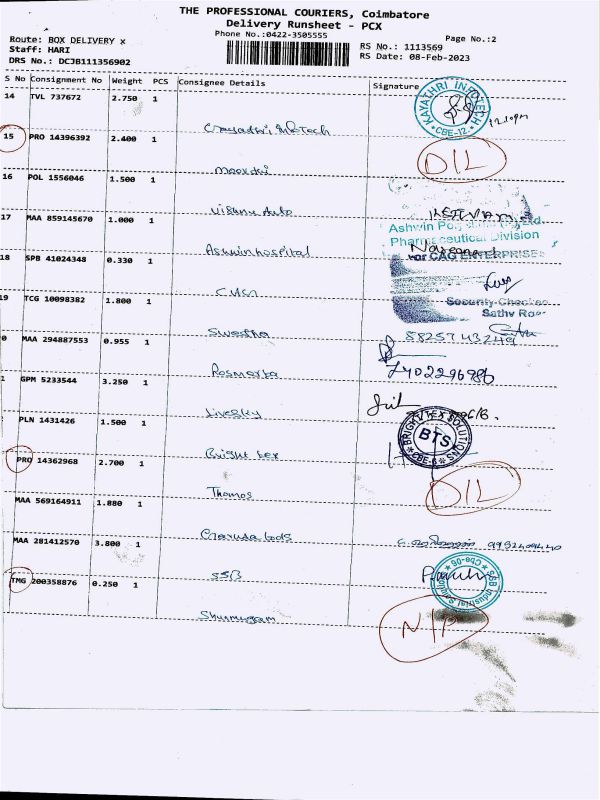 THE PROFESSIONAL COURIERS, Coimbatore
Delivery Runsheet - PCX
Phone No.:0422-3505555
Page No.:2
Route: BOX DELIVERY x
Staff: HARI
DRS No.: DCJB111356902
RS No.: 1113569
RS Date: 08-Feb-2023
S No Consignment No Weight PCS Consignee Details Signature
14 TVL 737672 2.750 1
KAYATHRI INFOTECH
CBE-12.
12.10pm
Gayadhri InfoTech
15 PRO 14396392 2.400 1
D/L
16 POL 1556046 1.500 1
Vishnu Auto
17 MAA 859145670 1.000 1
Pharmaceutical Division
Ashwin hospital
18 SPB 41024348 0.330 1
For CAG ENTERPRISES
Security Checked
19 TCG 10098382 1.800 1
Swestha
0 MAA 294887553 0.955 1
Rosmerta
1 GPM 5233544 3.250 1
Livesky
PLN 1431426 1.500 1
BRIGHTTEX SOLUTIONS
BTS
CBE-6
Bright tex
PRO 14362968 2.700 1
D/L
Thomas
MAA 569164911 1.880 1
MAA 281412570 3.800 1
SSB
SSB Industrial Solution
Cbe-06
TMG 200358876 0.250 1
N/P
Shunugam